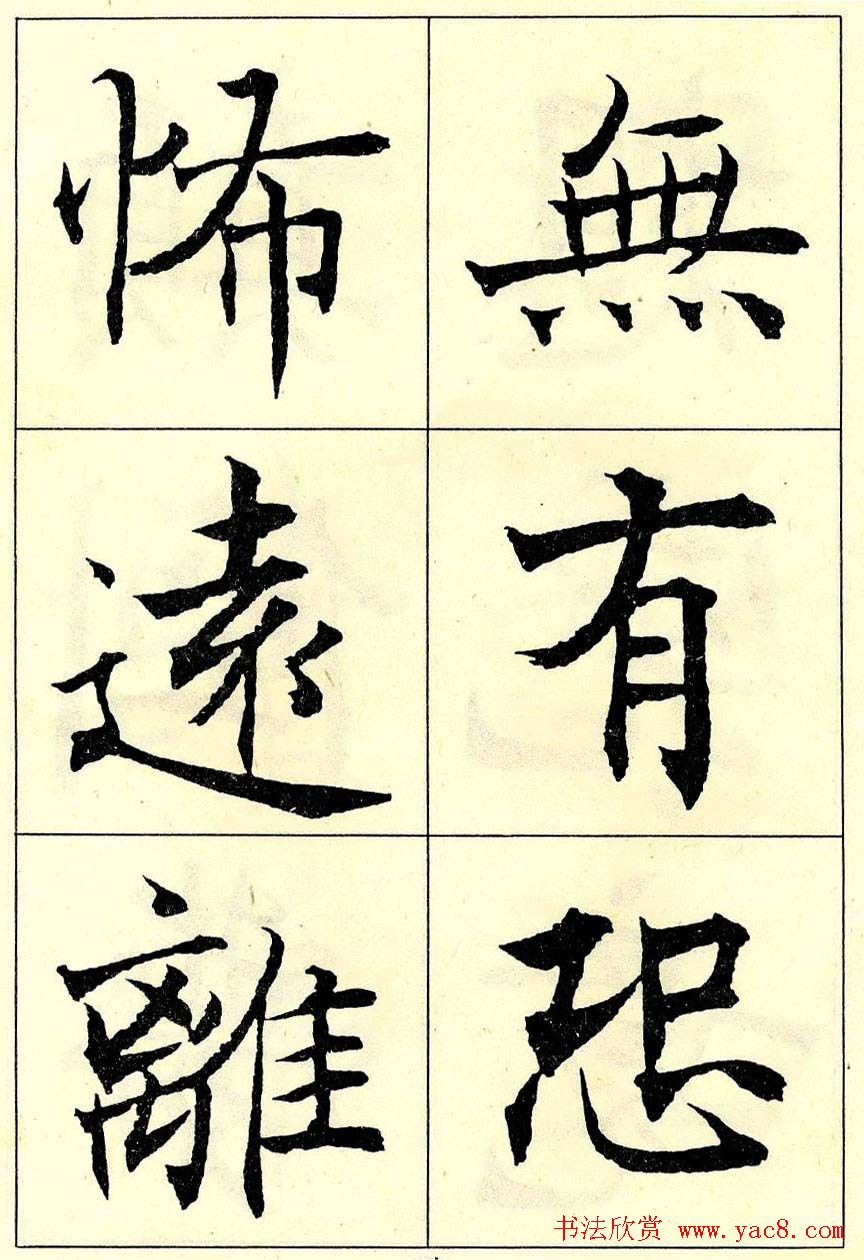 無有恐
怖遠離
书法欣赏 www.yac8.com